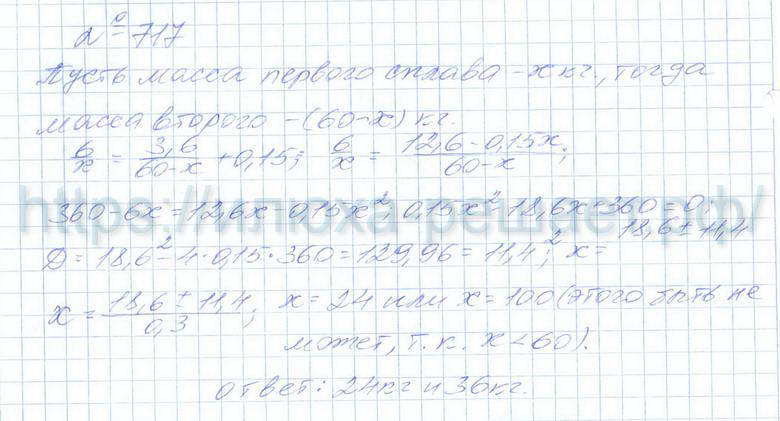 № 717
Пусть масса первого сплава - x кг., тогда
масса второго - (60-x) кг.
6/x = 3,6/(60-x) + 0,15; 6/x = (12,6-0,15x)/(60-x);
360-6x=12,6x-0,15x²; 0,15x²-18,6x+360=0;
D=18,6²-4·0,15·360=129,96=11,4²; x= 18,6±11,4
x = (18,6±11,4)/0,3; x=24 или x=100 (этого быть не
может, т.к. x<60).
ответ: 24кг и 36кг.